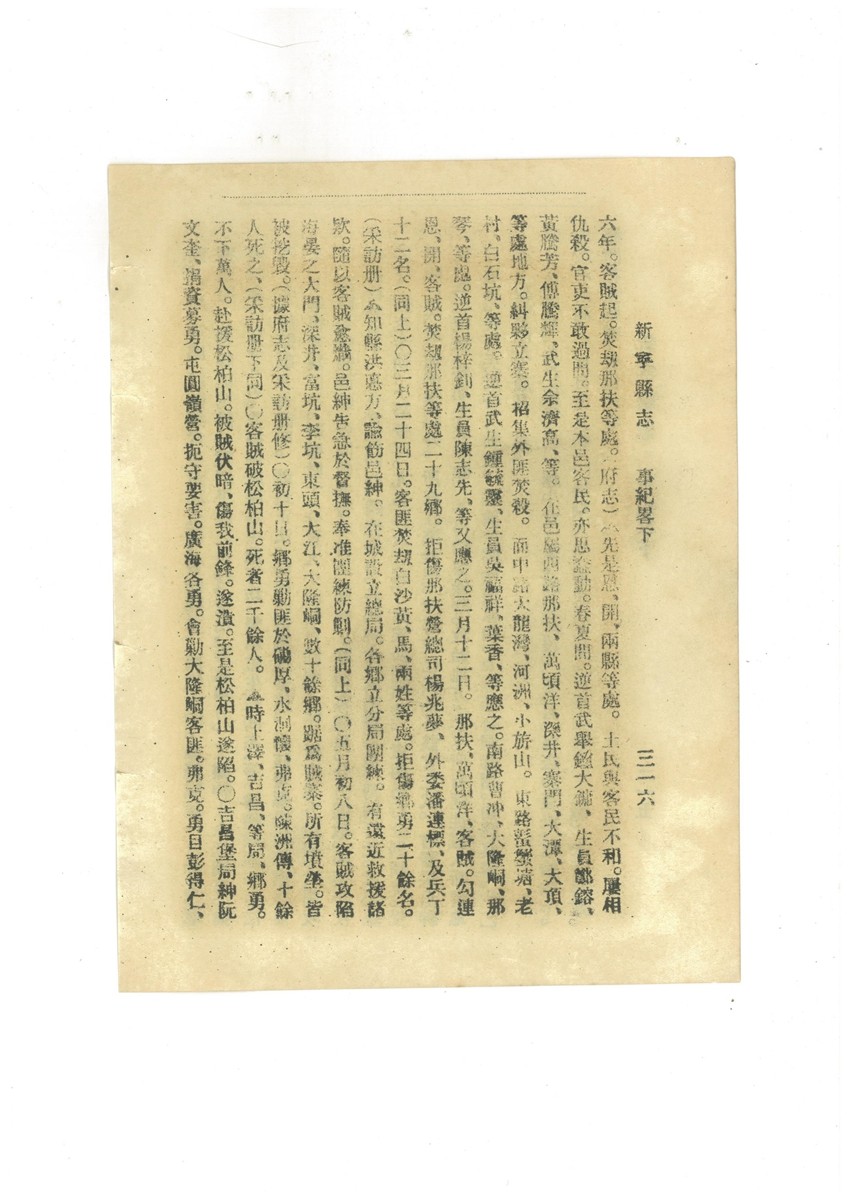 新寧縣志 事紀畧下 三一六
六年。客賊起。焚刼那扶等處。(府志)▲先是恩、開、兩縣等處。土民與客民不和。屢相
仇殺。官吏不敢過問。至是本邑客民。亦思蠢動。春夏間。逆首武舉鍾大鏞、生員鄒鎔、
黃騰芳、傅騰輝、武生余濟高、等。在邑屬西路那扶、萬頃洋、深井、寨門、大潭、大頂、
等處地方。糾夥立寨。招集外匪焚殺。而中路大龍灣、河洲、小旂山。東路蟚蟹塘、老
村。白石坑、等處。逆首武生鍾毓靈、生員吳福祥、葉香、等應之。南路曹冲、大隆峒、那
琴、等處。逆首楊梓釗、生員陳志先、等又應之。三月十二日。那扶、萬頃洋、客賊。勾連
恩、開、客賊。焚刼那扶等處二十九鄉。拒傷那扶營總司楊兆夢、外委潘連標、及兵丁
十二名。(同上)〇三月二十四日。客匪焚刼白沙黃、馬、兩姓等處。拒傷鄉勇二十餘名。
(采訪册)▲知縣洪惪方、諭飭邑紳。在城設立總局。各鄉立分局團練。有遠近救援諸
欵。隨以客賊愈熾。邑紳告急於督撫。奉准團練防勦。(同上)〇五月初八日。客賊攻陷
海晏之大門、深井、富坑、李坑、東頭、大江、大隆峒、數十餘鄉。踞爲賊寨。所有墳塋。皆
被挖毀。(據府志及采訪册修)〇初十日。鄉勇勦匪於磡厚、水洞懷、弗克。陳洲傳、十餘
人死之、(采訪册下同)〇客賊破松柏山。死者二千餘人。▲時上澤、吉昌、等局、鄉勇。
不下萬人。赴援松柏山。被賊伏暗、傷我前鋒。遂潰。至是松柏山遂陷。〇吉昌堡局紳阮
文奎、捐資募勇。屯圓嶺營。扼守要害。廣海各勇。會勦大隆峒客匪。弗克。勇目彭得仁、